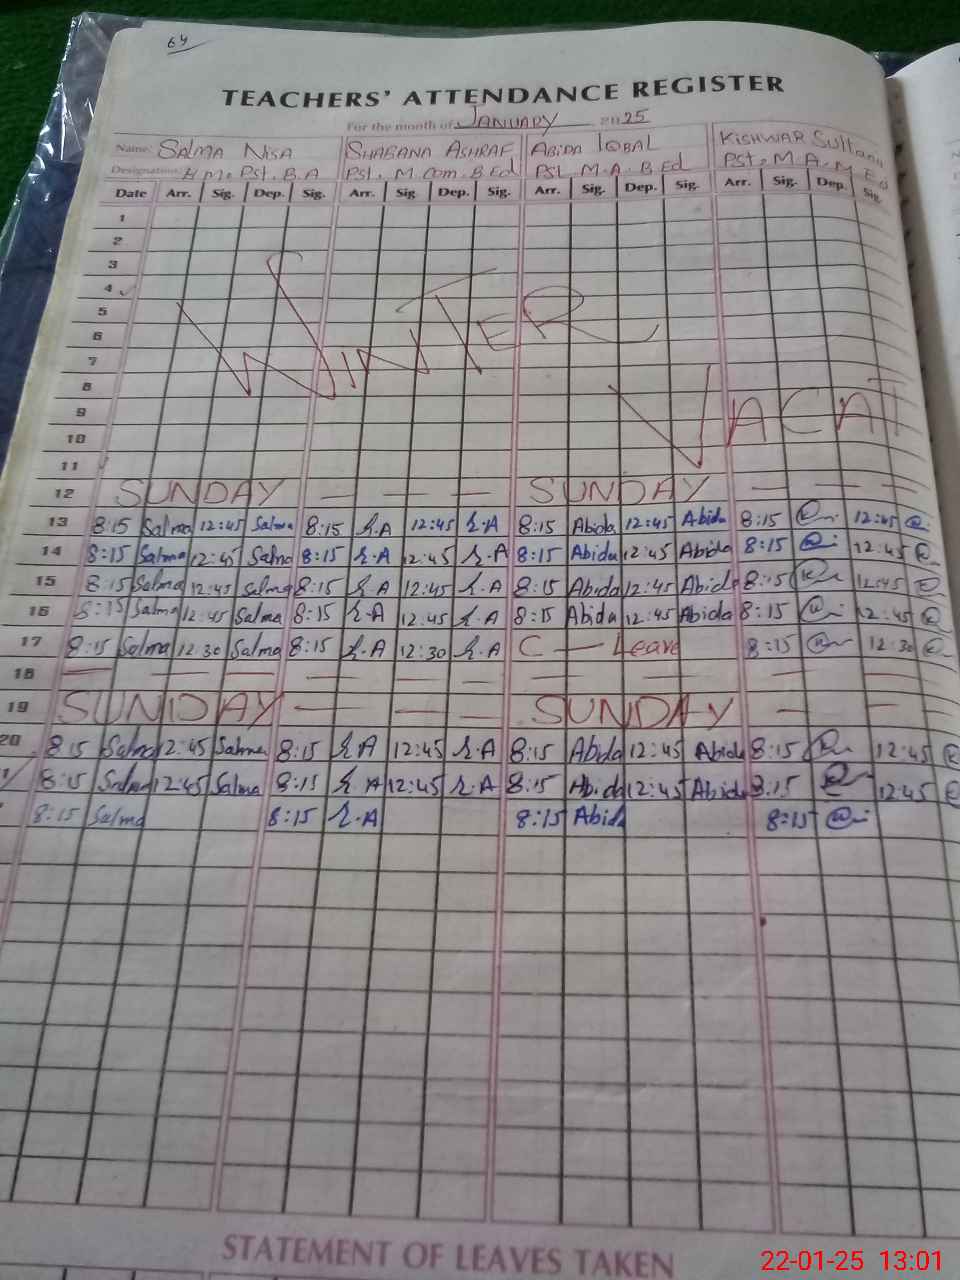 64
TEACHERS' ATTENDANCE REGISTER
For the month of JANUARY 2025
Name: SALMA NISA SHABANA ASHRAF ABIDA IQBAL KISHWAR Sultana
Designation: H.M. Pst. B.A Pst, M.Com. B.Ed Pst, M.A. B.Ed Pst, M.A. M.Ed
Date Arr. Sig. Dep. Sig. Arr. Sig. Dep. Sig. Arr. Sig. Dep. Sig. Arr. Sig. Dep. Sig.
1
2
3
4
5
6
7
8
9
10
11
WINTER
VACAT
12 SUNDAY — — — SUNDAY — — —
13 8:15 Salma 12:45 Salma 8:15 S.A 12:45 S.A 8:15 Abida 12:45 Abida 8:15 12:45
14 8:15 Salma 12:45 Salma 8:15 S.A 12:45 S.A 8:15 Abida 12:45 Abida 8:15 12:45
15 8:15 Salma 12:45 Salma 8:15 S.A 12:45 S.A 8:15 Abida 12:45 Abida 8:15 12:45
16 8:15 Salma 12:45 Salma 8:15 S.A 12:45 S.A 8:15 Abida 12:45 Abida 8:15 12:45
17 8:15 Salma 12:30 Salma 8:15 S.A 12:30 S.A C — Leave 8:15 12:30
18 — — — — — — — — — —
19 SUNDAY — — — SUNDAY — —
20 8:15 Salma 12:45 Salma 8:15 S.A 12:45 S.A 8:15 Abida 12:45 Abida 8:15 12:45
8:15 Salma 12:45 Salma 8:15 S.A 12:45 S.A 8:15 Abida 12:45 Abida 8:15 12:45
8:15 Salma 8:15 S.A 8:15 Abida 8:15
STATEMENT OF LEAVES TAKEN
22-01-25 13:01